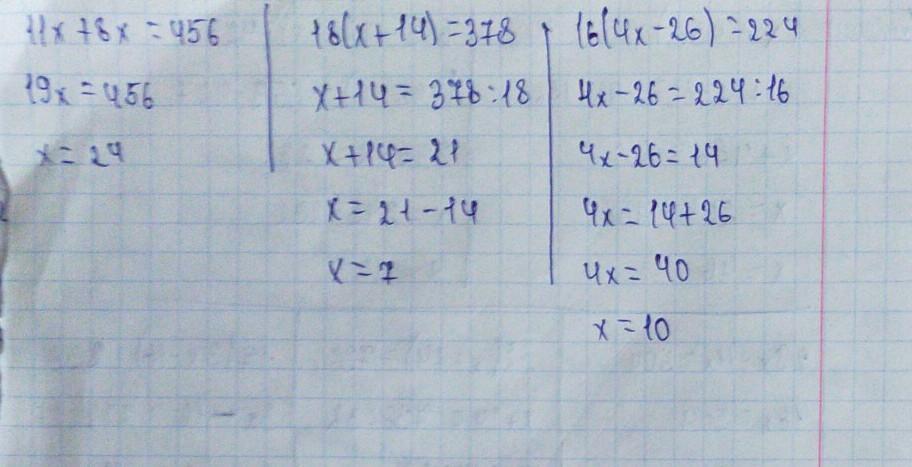 11x+8x=456
19x=456
x=24
18(x+14)=378
x+14=378:18
x+14=21
x=21-14
x=7
16(4x-26)=224
4x-26=224:16
4x-26=14
4x=14+26
4x=40
x=10